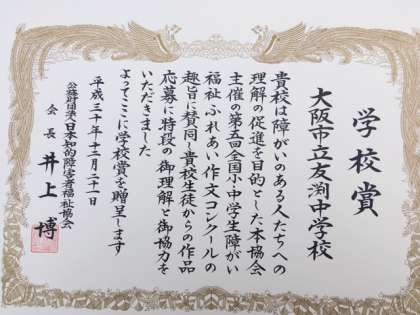 学校賞
大阪市立友渕中学校
貴校は障がいのある人たちへの
理解の促進を目的とした本協会
主催の第五回全国小中学生障がい
福祉ふれあい作文コンクールの
趣旨に賛同し貴校生徒からの作品
応募に特段の御理解と御協力を
いただきました
よってここに学校賞を贈呈します
平成三十年十二月二十一日
公益財団法人日本知的障害者福祉協会
会長 井上博